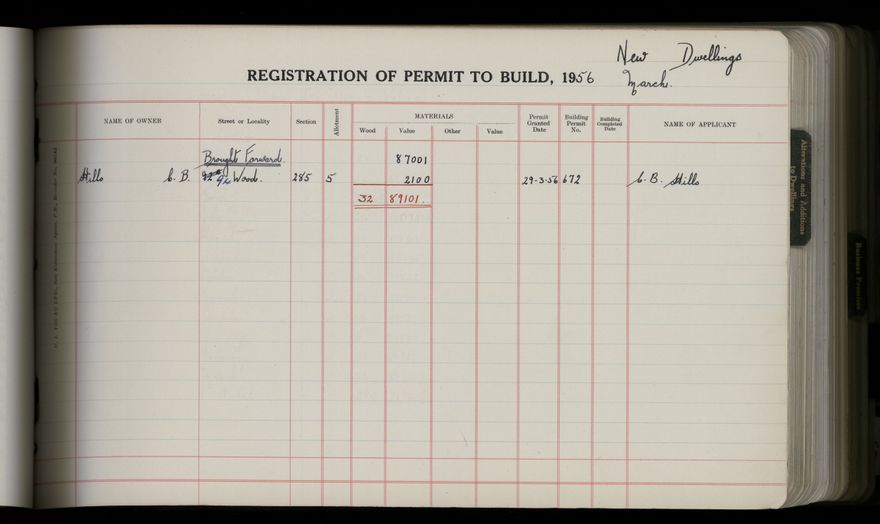 New Dwellings
REGISTRATION OF PERMIT TO BUILD, 1956 March.
NAME OF OWNER Street or Locality Section Allotment MATERIALS Permit Granted Date Building Permit No. Building Completed Date NAME OF APPLICANT
Wood Value Other Value
Brought Forward. 87001
Hills C. B. Wood. 285 5 2100 29-3-56 672 C. B. Hills
32 89101.
Alterations and Additions to Dwellings
Business Premises